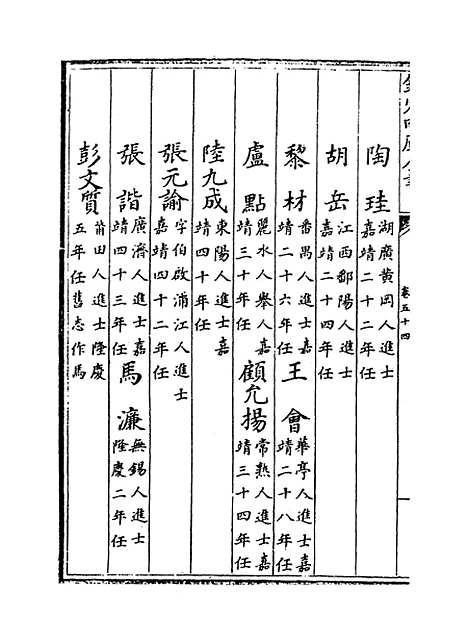 欽定四庫全書
卷五十四
陶珪 湖廣黄岡人進士嘉靖二十二年任
胡岳 江西鄱陽人進士嘉靖二十四年任
黎材 番禺人進士嘉靖二十六年任 王會 華亭人進士嘉靖二十八年任
盧點 麗水人舉人嘉靖三十年任 顧允揚 常熟人進士嘉靖三十四年任
陸九成 東陽人進士嘉靖四十年任
張元諭 字伯啟浦江人進士嘉靖四十二年任
張諧 廣濟人進士嘉靖四十三年任 馬濂 無錫人進士隆慶二年任
彭文質 莆田人進士隆慶五年任舊志作馬